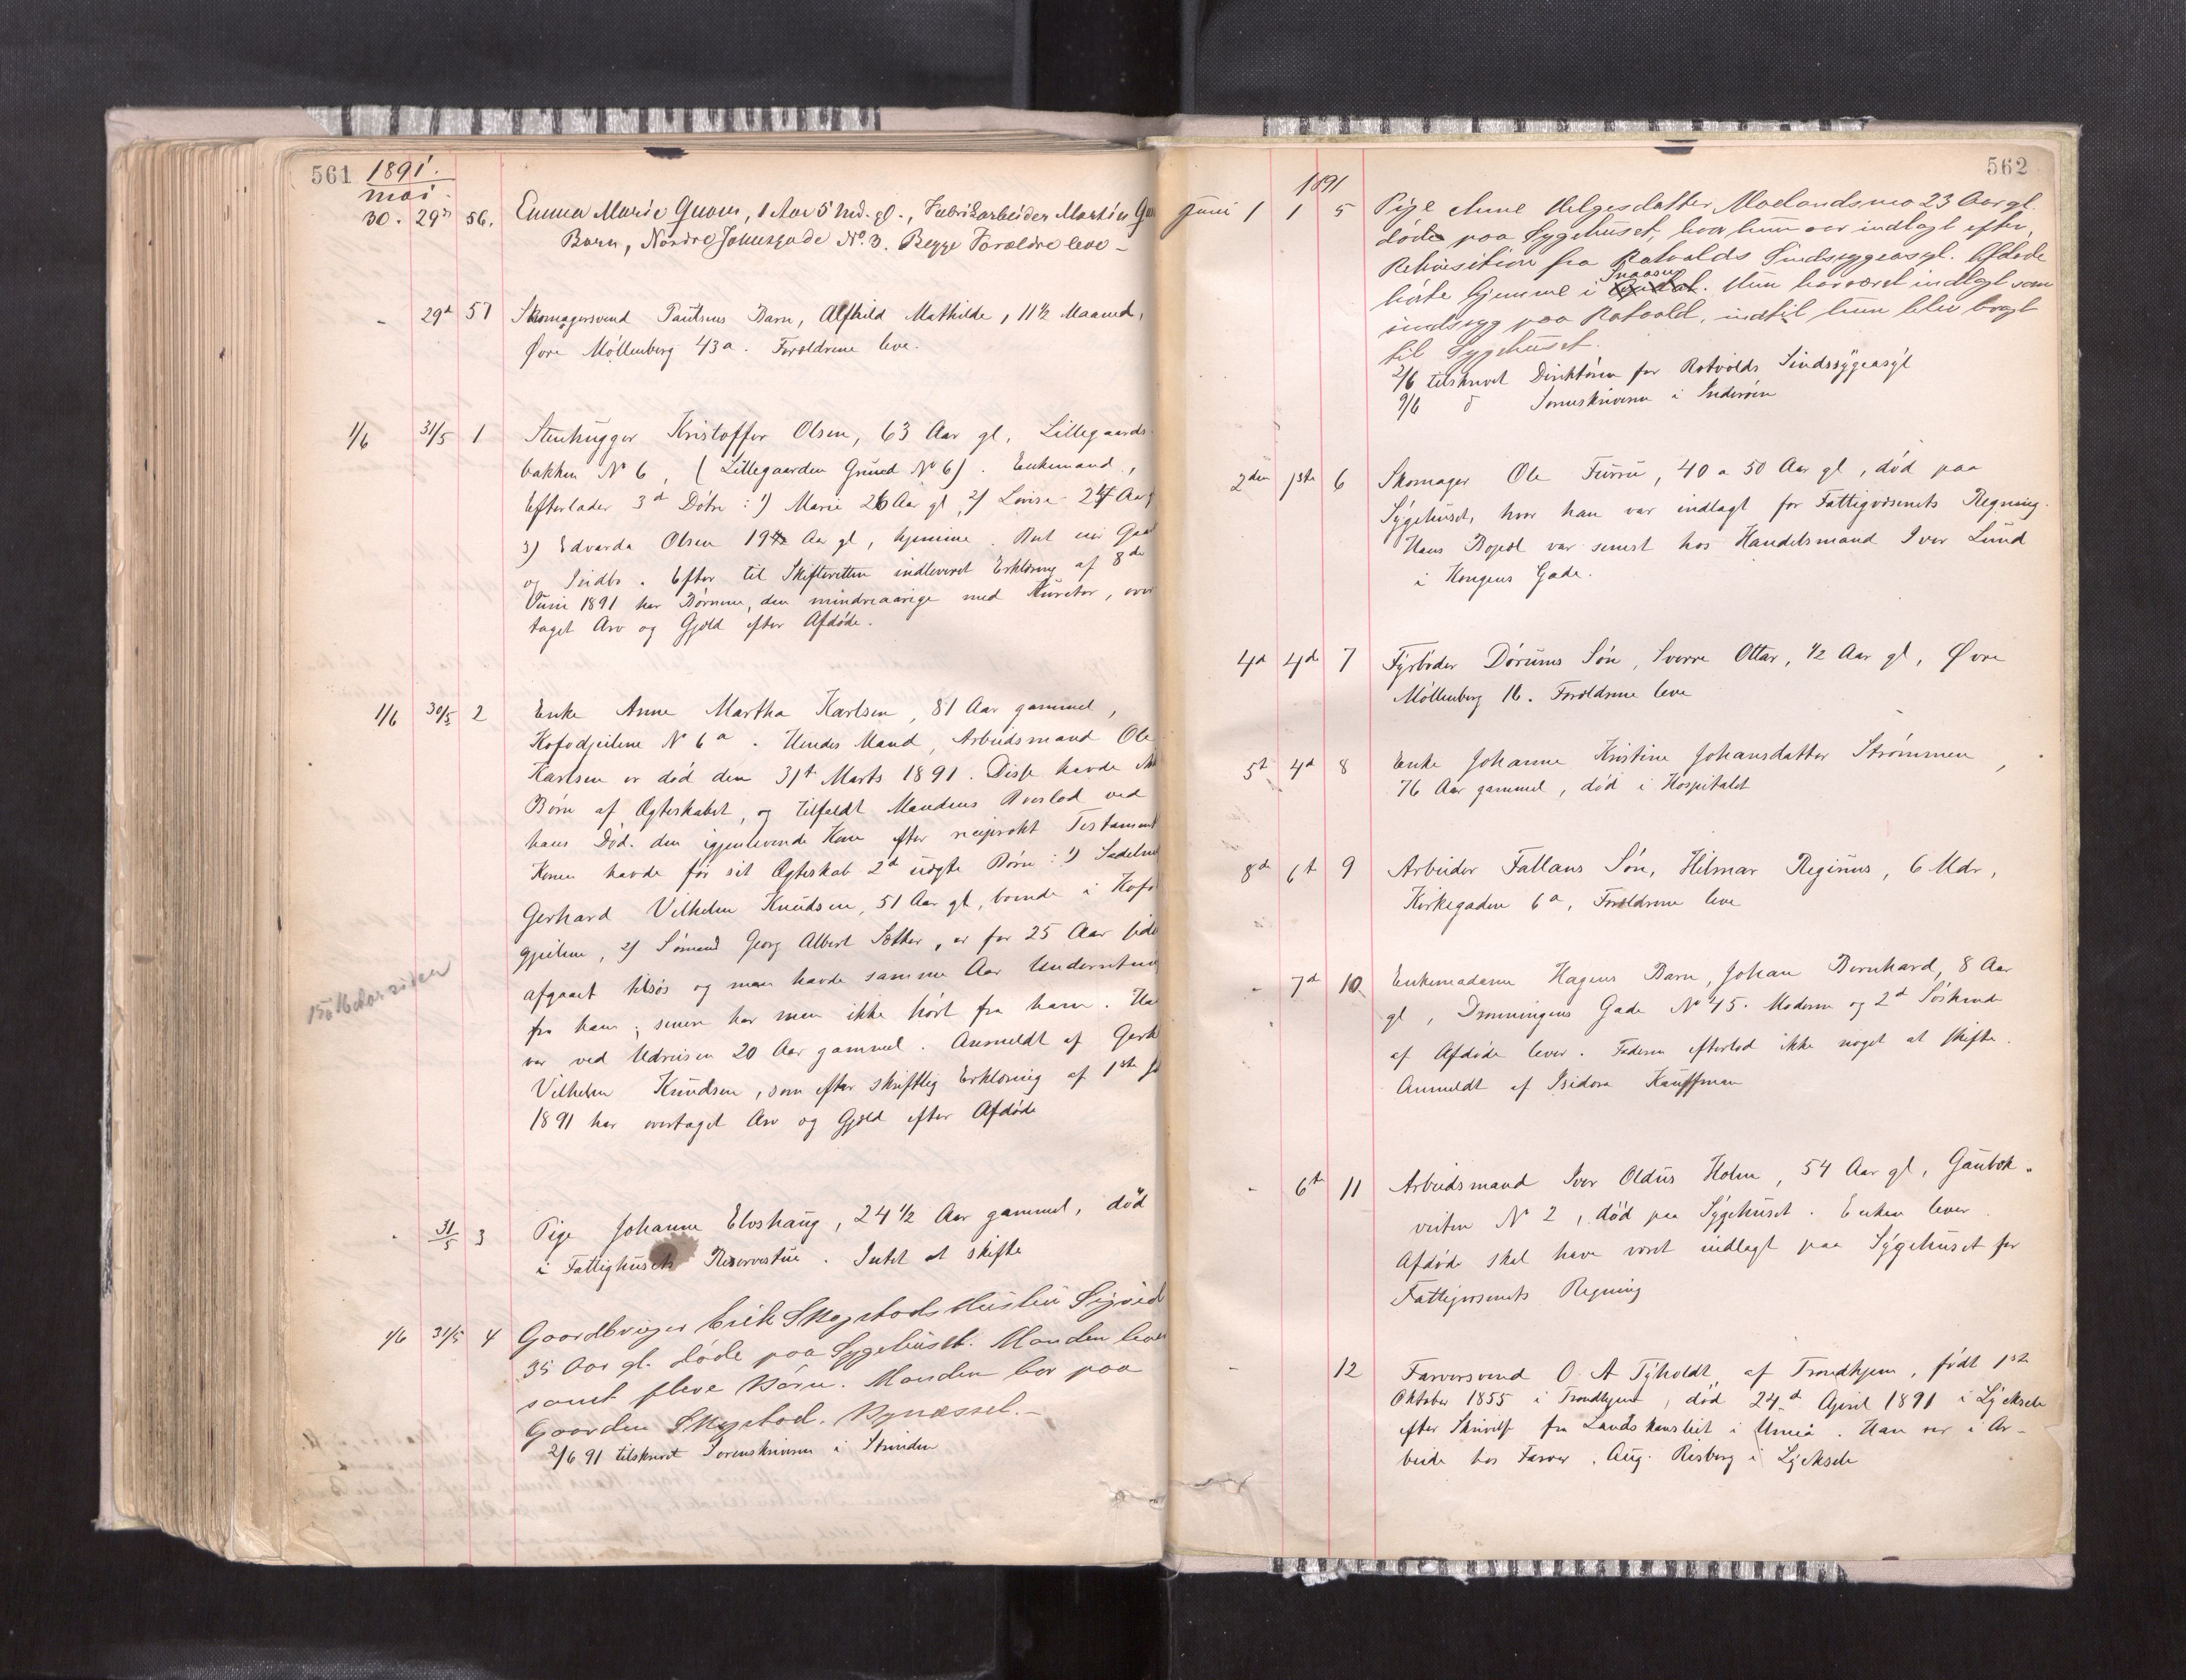 561 1891.
mai.
30. 29de 56. Emma Marie Quam, 1 Aar 5 Md. gl., Fabrikarbeider Martin
Barn, Nordre Johnsgade No. 3. Begge Forældre leve –
- 29d 57 Skomagersvend Paulsens Barn, Alfhild Mathilde, 11 1/2 Maaned,
Øvre Møllenberg 43a. Forældrene leve.
1/6 31/5 1 Stenhugger Kristoffer Olsen, 63 Aar gl, Lillegaards-
bakken No 6, (Lillegaarden Grund No 6). Enkemand,
Efterlader 3d Døtre: 1) Marie 26 Aar gl, 2) Lovise 24 Aar g
3) Edvarda Olsen 19 Aar gl, hjemme.
og Indbo. Efter til Skifteretten indleveret Erklæring af 8de
Juni 1891 har Børnene, den mindreaarige med Kurator, over
taget Arv og Gjæld efter Afdøde.
1/6 30/5 2 Enke Anne Martha Karlsen, 81 Aar gammel,
Kofodgjeilene No 6a. Hendes Mand, Arbeidsmand Ole
Karlsen er død den 31t Marts 1891. Disse havde
Børn af Ægteskabet, og tilfaldt Mandens Boeslod ved
hans Død den igjenlevende Kone efter reciprokt Testament
Konen havde før sit Ægteskab 2d uægte Børn: 1) Sadelm
Gerhard Vilhelm Knudsen, 51 Aar gl, boende i Kofo
gjeilene, 2) Sømand Georg Albert Sæther, er for 25 Aar side
afgaaet tilsøs og man havde samme Aar Underretning
fra ham; senere har man ikke hørt fra ham. Ha
var ved Udreisen 20 Aar gammel. Anmeldt af Gerh
Vilhelm Knudsen, som efter skriftlig Erklæring af 1ste J
1891 har overtaget Arv og Gjæld efter Afdøde
- 31/5 3 Pige Johanne Elvshaug, 24 1/2 Aar gammel, død
i Fattighusets Reservestue. Intet at skifte
1/6 31/5 4 Gaardbruger Erik Skogstads Hustru Sigrid
35 Aar gl. døde paa Sygehuset. Manden lever
samt flere Børn. Manden bor paa
Gaarden Skogstad. Bynæsset. –
2/6 91 tilskrevet Sorenskriveren i Strinden
562
1891
Juni 1 1 5 Pige Anne Helgesdatter Moelandsmo 23 Aar gl.
døde paa Sygehuset, hvor hun var indlagt efter
Rekvisition fra Rotvolds Sindssygeasyl. Afdøde
hørte hjemme i Snaasen. Hun har været indlagt som
sindssyg paa Rotvold, indtil hun blev bragt
til Sygehuset.
2/6 tilskrevet Direktøren for Rotvolds Sindssygeasyl
9/6 d Sorenskriveren i Inderøen
2den 1ste 6 Skomager Ole Furru, 40 a 50 Aar gl, død paa
Sygehuset, hvor han var indlagt for Fattigvæsenets Regning.
Hans Bopæl var senest hos Handelsmand Iver Lund
i Kongens Gade.
4d 4de 7 Fyrbøder Dørums Søn, Sverre Ottar, 1/2 Aar gl, Øvre
Møllenberg 16. Forældrene leve
5t 4d 8 Enke Johanne Kristine Johansdatter Strømmen,
76 Aar gammel, død i Hospitalet
8d 6t 9 Arbeider Fallans Søn, Hilmar Reginus, 6 Mdr,
Kirkegaden 6a, Forældrene leve
- 7d 10 Enkemadame Hagens Barn, Johan Bernhard, 8 Aar
gl, Dronningens Gade No 45. Moderen og 2d Søskende
af Afdøde lever. Faderen efterlod ikke noget at skifte.
Anmeldt af Isidora Kauffman
- 6t 11 Arbeidsmand Iver Oldus Holm, 54 Aar gl, Gaubæk-
veiten No 2, død paa Sygehuset. Enken lever
Afdøde skal have været indlagt paa Sygehuset for
Fattigvæsenets Regning
- 12 Farversvend O. A Tyholdt af Trondhjem, født 1ste
Oktober 1855 i Trondhjem, død 24d April 1891 i Lycksele
efter Skrivelse fra Landskansliet i Umeå. Han var i Ar-
beide hos Farver Aug. Risberg i Lycksele